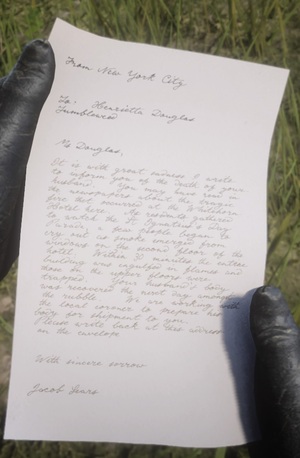 From New York City
To: Henrietta Douglas
Tumbleweed
Ms Douglas,
It is with great sadness I wrote
to inform you of the death of your
husband. You may have read in
the newspapers about the tragic
fire that occurred at the Windsor
Hotel here. As residents gathered
to watch the St. Ignatious's Day
Parade, a few people began to
cry out as smoke emerged from
windows on the second floor of the
hotel. Within 30 minutes the entire
building was engulfed in flames and
those on the upper floors were
trapped. Your husband's body
was recovered the next day amongst
the rubble. We are working with
the local coroner to prepare his
body for shipment to you.
Please write back at this address
on the envelope.
With sincere sorrow
Jacob Sears